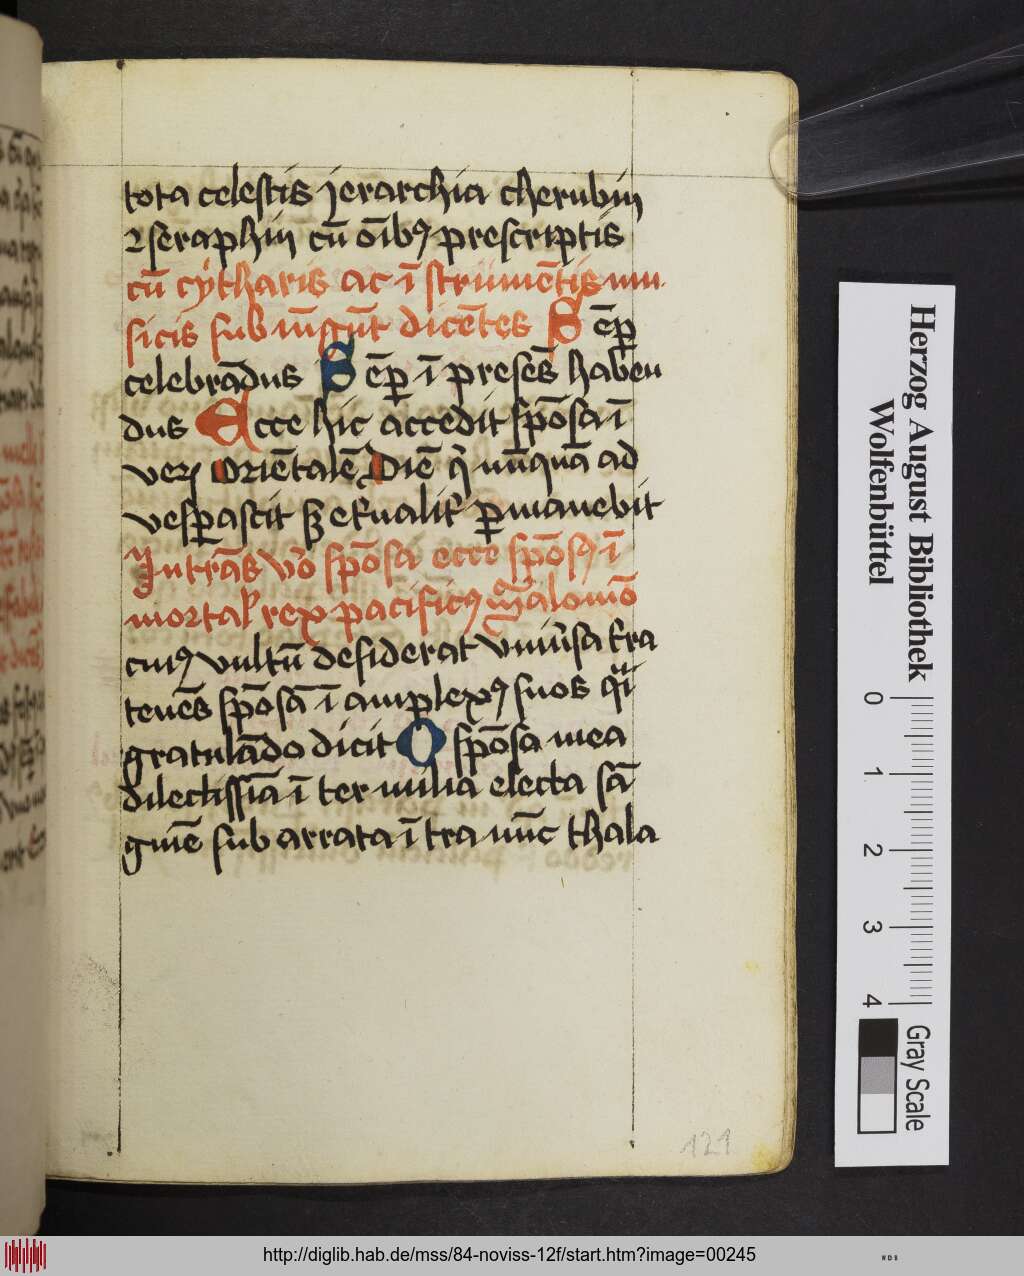 tota celestis jerarchia cherubin
⁊ seraphin cū oībꝫ prescriptis
cū cytharis ac ī strumētis mu
sicis sub iūgūt dicētes Sēꝑ
celebrādus Sēꝑ ī presēs haben
dus Ecce hic accedit spōsa ī
Oriētalē Diē q̄ nūquā ad
vesꝑascit sꝫ et̄naliṫ ꝑmanebit
Intrās vō spōsa ecce spōsꝫ ī
mortal rex pacificꝫ salomō
cuiꝫ vultū desiderat vniūsa t̄ra
tenēs spōsā ī amplexꝫ suos
gratulādo dicit O spōsa mea
dilectissīa ī ter milia electa sā
guīe sub arrata ī tra nūc thala
121
Herzog August Bibliothek
Wolfenbüttel
0 1 2 3 4
Gray Scale
http://diglib.hab.de/mss/84-noviss-12f/start.htm?image=00245